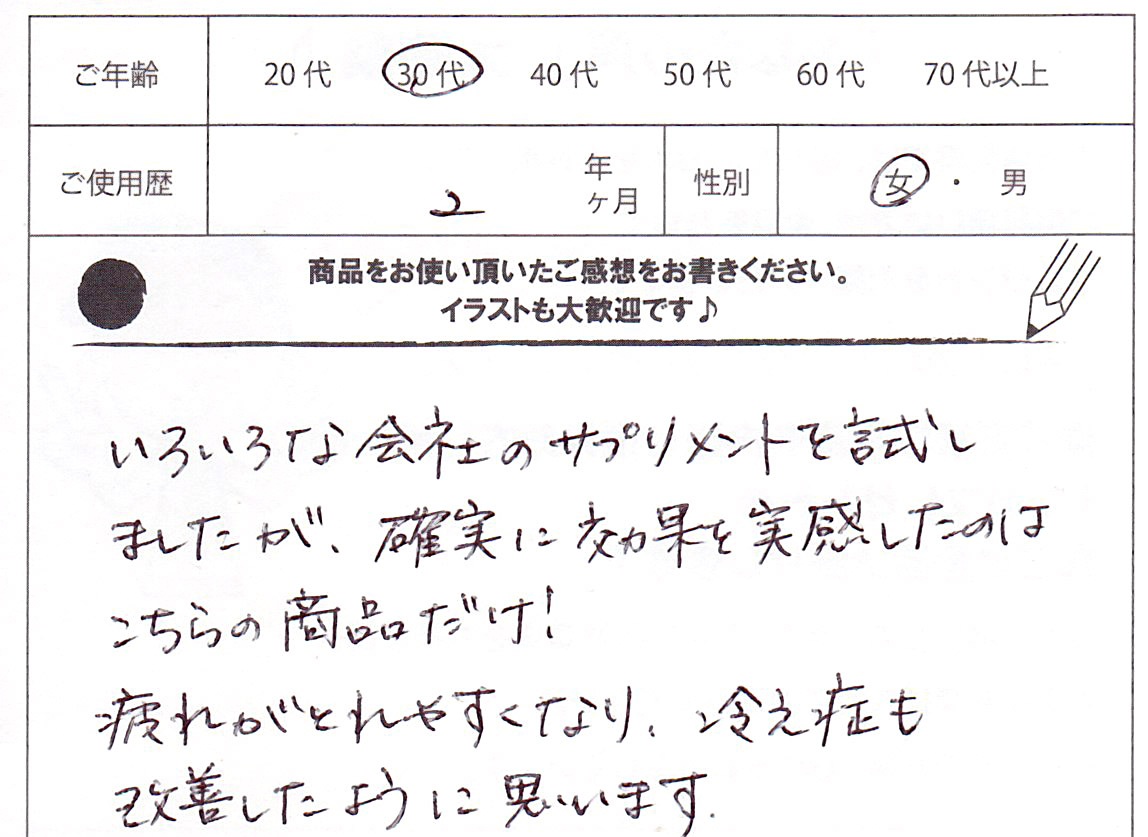 ご年齢 20代 30代 40代 50代 60代 70代以上
ご使用歴 2 年 ヶ月 性別 女 ・ 男
商品をお使い頂いたご感想をお書きください。
イラストも大歓迎です♪
いろいろな会社のサプリメントを試し
ましたが、確実に効果を実感したのは
こちらの商品だけ!
疲れがとれやすくなり、冷え症も
改善したように思います.